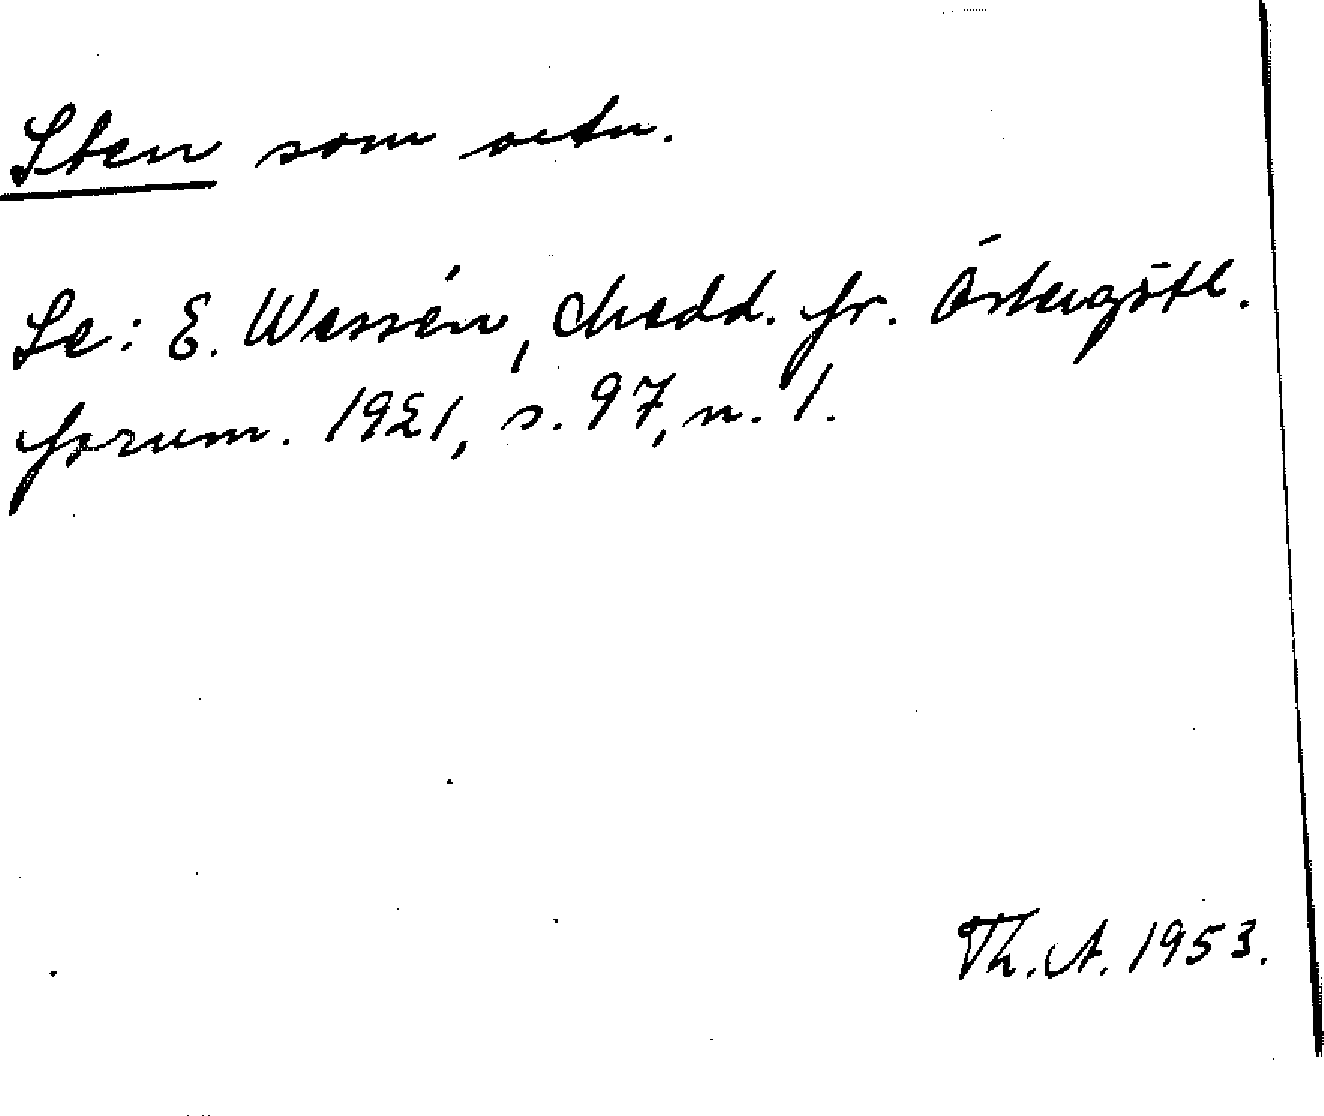 Sten som ortn.
Se: E. Wessén, Medd. fr. Östergötl.
fornm. 1921, s. 97, n. 1.
Th. A. 1953.